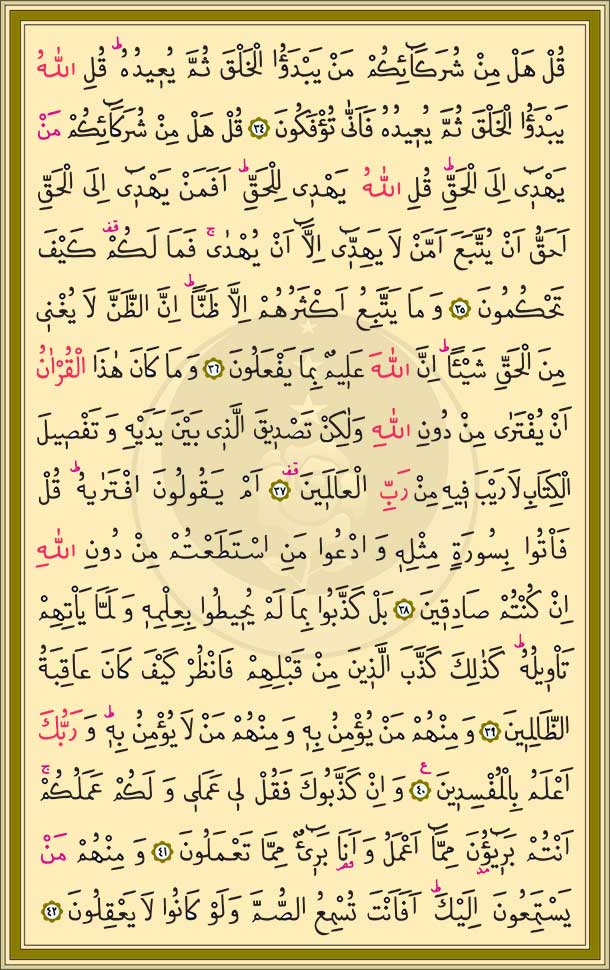 قُلْ هَلْ مِنْ شُرَكَٓائِكُمْ مَنْ يَبْدَؤُا الْخَلْقَ ثُمَّ يُع۪يدُهُۜ قُلِ اللّٰهُ
يَبْدَؤُا الْخَلْقَ ثُمَّ يُع۪يدُهُ فَاَنّٰى تُؤْفَكُونَ ﴿٣٤﴾ قُلْ هَلْ مِنْ شُرَكَٓائِكُمْ مَنْ
يَهْد۪ٓي اِلَى الْحَقِّۜ قُلِ اللّٰهُ يَهْد۪ي لِلْحَقِّۜ اَفَمَنْ يَهْد۪ٓي اِلَى الْحَقِّ
اَحَقُّ اَنْ يُتَّبَعَ اَمَّنْ لَا يَهِدّ۪ٓي اِلَّٓا اَنْ يُهْدٰىۚ فَمَا لَكُمْ۠ كَيْفَ
تَحْكُمُونَ ﴿٣٥﴾ وَمَا يَتَّبِعُ اَكْثَرُهُمْ اِلَّا ظَنًّاۜ اِنَّ الظَّنَّ لَا يُغْن۪ي
مِنَ الْحَقِّ شَيْـًٔاۜ اِنَّ اللّٰهَ عَل۪يمٌ بِمَا يَفْعَلُونَ ﴿٣٦﴾ وَمَا كَانَ هٰذَا الْقُرْاٰنُ
اَنْ يُفْتَرٰى مِنْ دُونِ اللّٰهِ وَلٰكِنْ تَصْد۪يقَ الَّذ۪ي بَيْنَ يَدَيْهِ وَتَفْص۪يلَ
الْكِتَابِ لَا رَيْبَ ف۪يهِ مِنْ رَبِّ الْعَالَم۪ينَ۠ ﴿٣٧﴾ اَمْ يَقُولُونَ افْتَرٰيهُۜ قُلْ
فَأْتُوا بِسُورَةٍ مِثْلِه۪ وَادْعُوا مَنِ اسْتَطَعْتُمْ مِنْ دُونِ اللّٰهِ
اِنْ كُنْتُمْ صَادِق۪ينَ ﴿٣٨﴾ بَلْ كَذَّبُوا بِمَا لَمْ يُح۪يطُوا بِعِلْمِه۪ وَلَمَّا يَأْتِهِمْ
تَأْو۪يلُهُۜ كَذٰلِكَ كَذَّبَ الَّذ۪ينَ مِنْ قَبْلِهِمْ فَانْظُرْ كَيْفَ كَانَ عَاقِبَةُ
الظَّالِم۪ينَ ﴿٣٩﴾ وَمِنْهُمْ مَنْ يُؤْمِنُ بِه۪ وَمِنْهُمْ مَنْ لَا يُؤْمِنُ بِه۪ۜ وَرَبُّكَ
اَعْلَمُ بِالْمُفْسِد۪ينَ۟ ﴿٤٠﴾ وَاِنْ كَذَّبُوكَ فَقُلْ ل۪ي عَمَل۪ي وَلَكُمْ عَمَلُكُمْۚ
اَنْتُمْ بَر۪ٓيؤُ۫نَ مِمَّٓا اَعْمَلُ وَاَنَا۬ بَر۪ٓيءٌ مِمَّا تَعْمَلُونَ ﴿٤١﴾ وَمِنْهُمْ مَنْ
يَسْتَمِعُونَ اِلَيْكَۜ اَفَاَنْتَ تُسْمِعُ الصُّمَّ وَلَوْ كَانُوا لَا يَعْقِلُونَ ﴿٤٢﴾